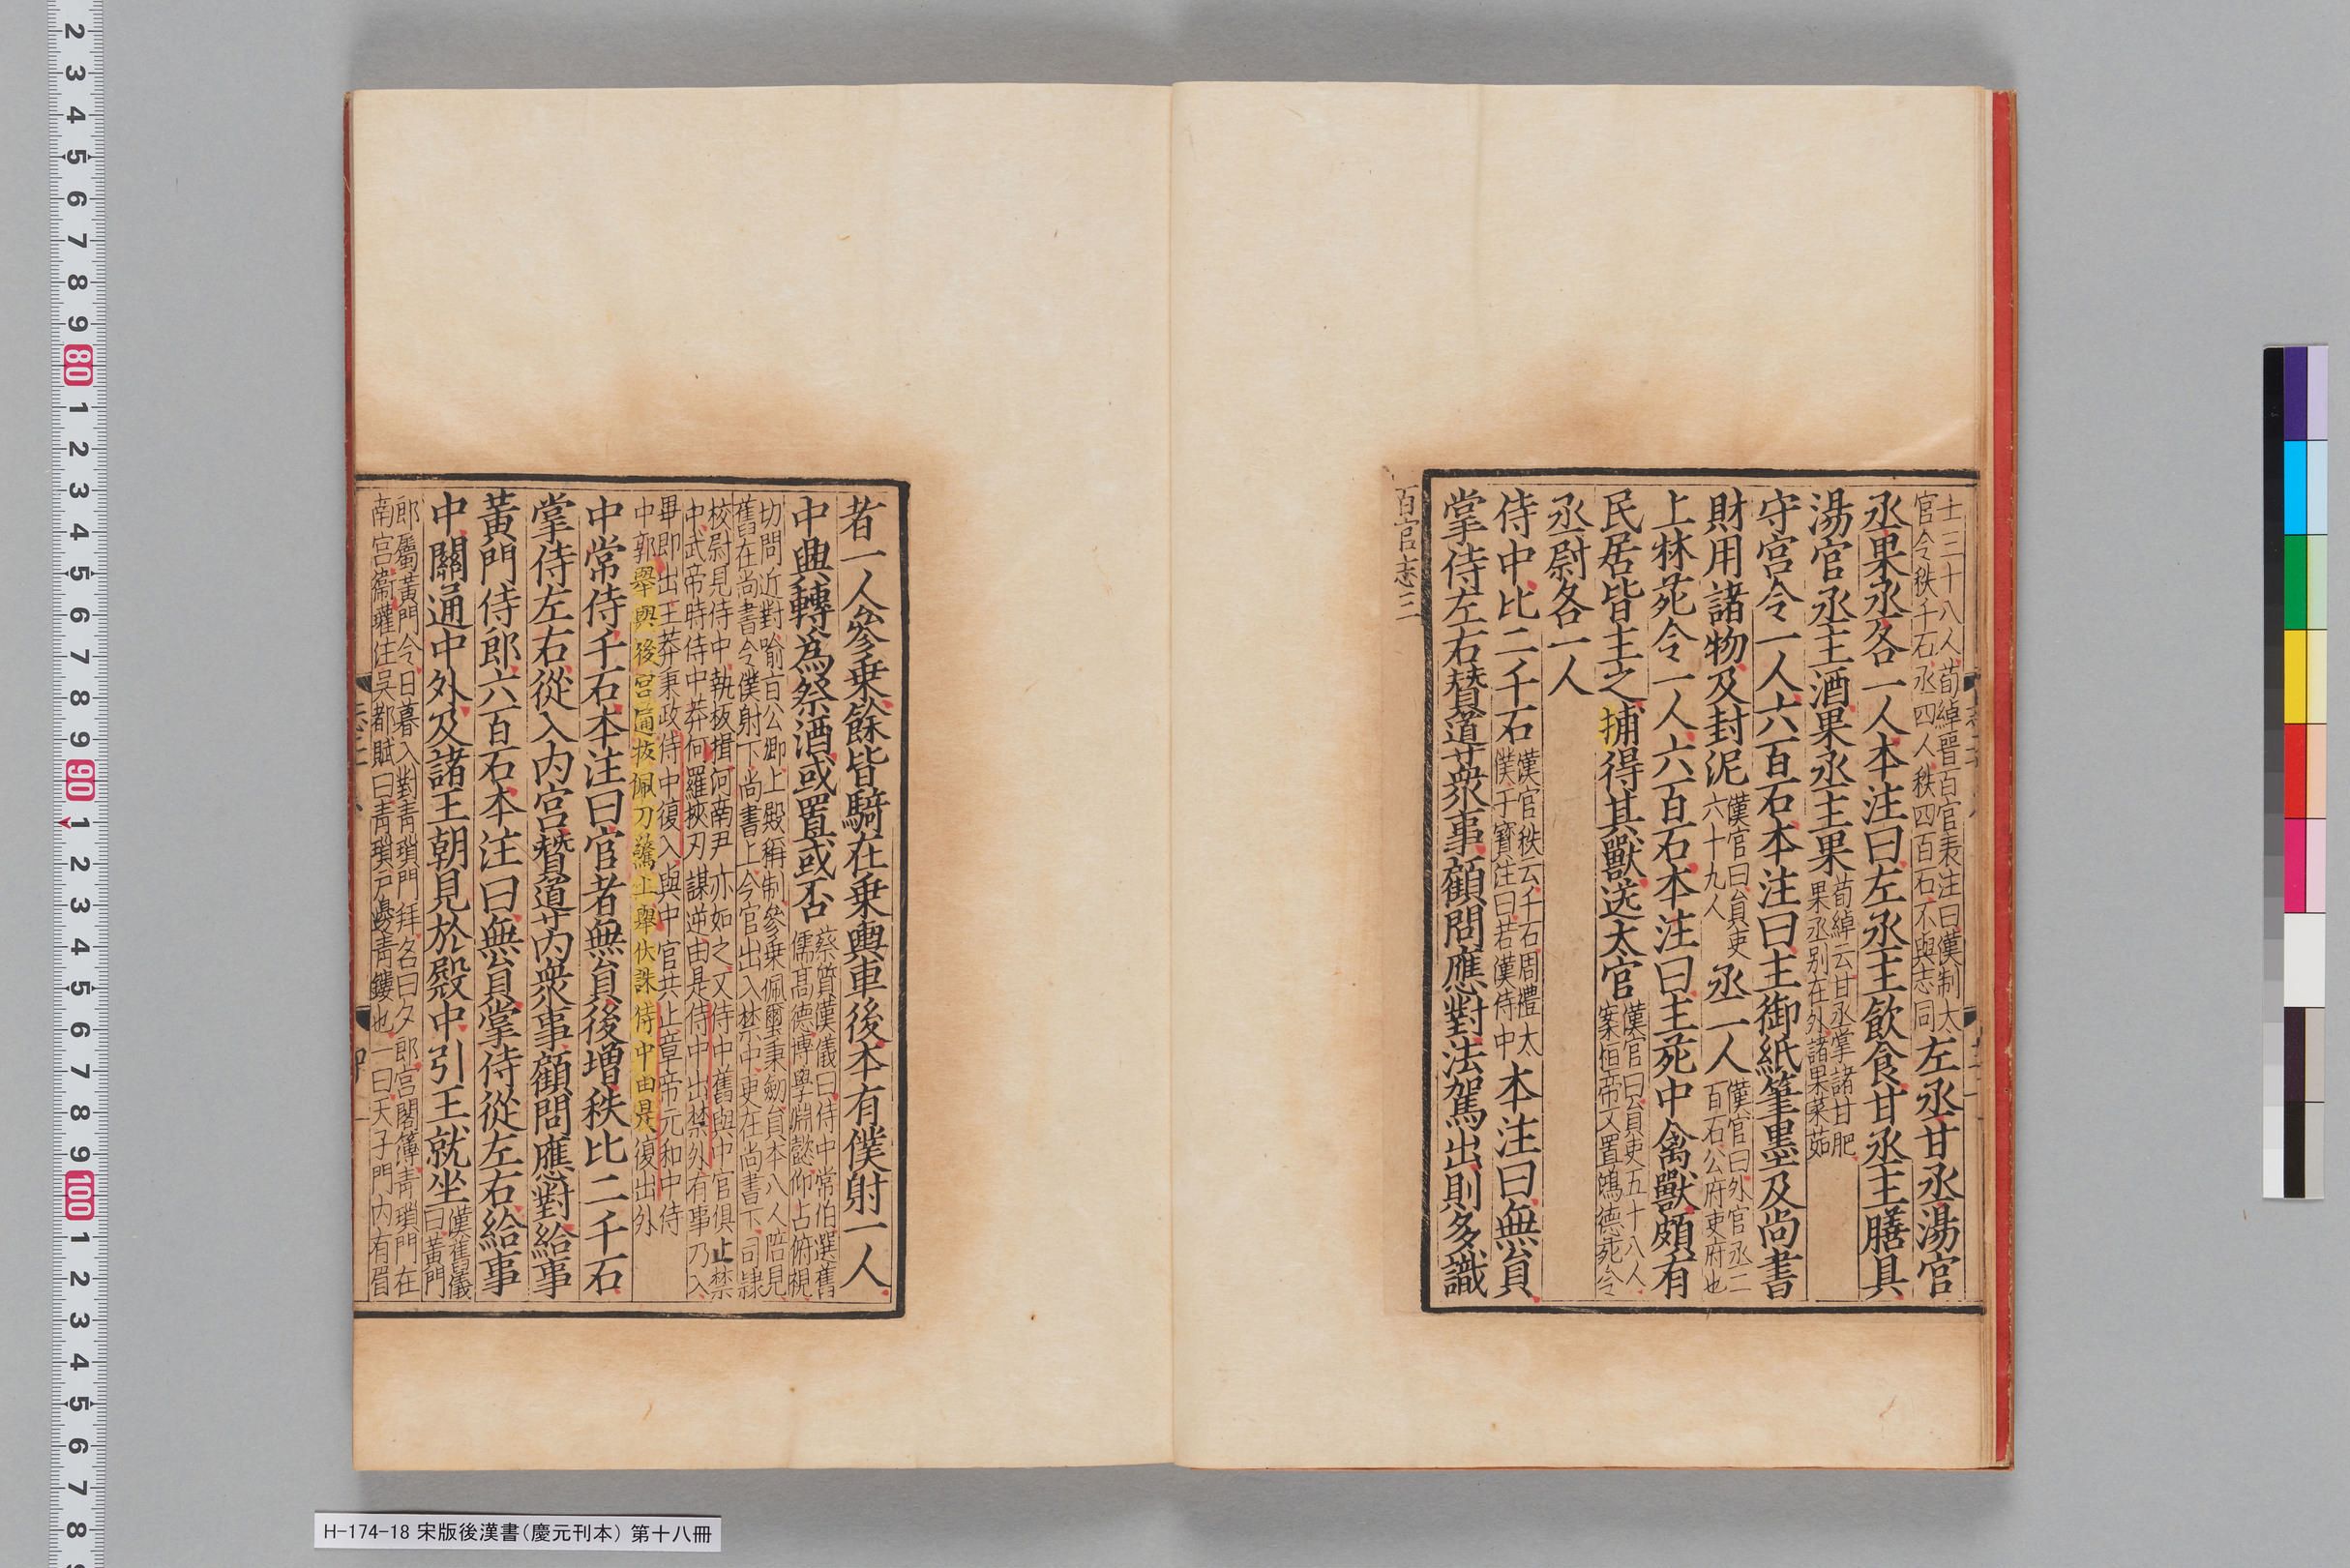 士三十八人荀綽晉百官表注曰漢制太
官令秩千石丞四人秩四百石不與志同
左丞甘丞湯官
丞果丞各一人本注曰左丞主飲食甘丞主膳具
湯官丞主酒果丞主果
荀綽云甘丞掌諸甘肥
果丞别在外諸果菜茹
守宫令一人六百石本注曰主御紙筆墨及尚書
財用諸物及封泥
漢官曰員吏
六十九人
丞一人
漢官曰外官丞二
百石公府吏府也
上林苑令一人六百石本注曰主苑中禽獸頗有
民居皆主之捕得其獸送太官
漢官曰員吏五十八人
案桓帝又置鴻德苑令
丞尉各一人
侍中比二千石
漢官秩云千石周禮太
僕干寶注曰若漢侍中
本注曰無員
掌侍左右贊道衆事顧問應對法駕出則多識
百官志三
者一人參乗餘皆騎在乗輿車後本有僕射一人
中興轉爲祭酒或置或否
蔡質漢儀曰侍中常伯選舊
儒髙德博學淵懿仰占俯視
切問近對喻㫖公卿上殿稱制參乗佩璽秉劒員本八人陪見
舊在尚書令僕射下尚書上今官出入禁中更在尚書下司隷
校尉見侍中執板揖河南尹亦如之又侍中舊與中官俱止禁
中武帝時侍中莽何羅挾刃謀逆由是侍中出禁外有事乃入
畢即出王莽秉政侍中復入與中官共止章帝元和中侍
中郭舉與後宫通拔佩刀驚上舉伏誅侍中由是復出外
中常侍千石本注曰宦者無員後增秩比二千石
掌侍左右從入内宫贊道内衆事顧問應對給事
黄門侍郎六百石本注曰無員掌侍從左右給事
中關通中外及諸王朝見於殿中引王就坐
漢舊儀
曰黄門
郎屬黄門令日暮入對青瑣門拜名曰夕郎宫閣簿青瑣門在
南宫衞瓘注吳都賦曰青瑣戸邊青鏤也一曰天子門内有眉
H-174-18 宋版後漢書（慶元刊本） 第十八冊